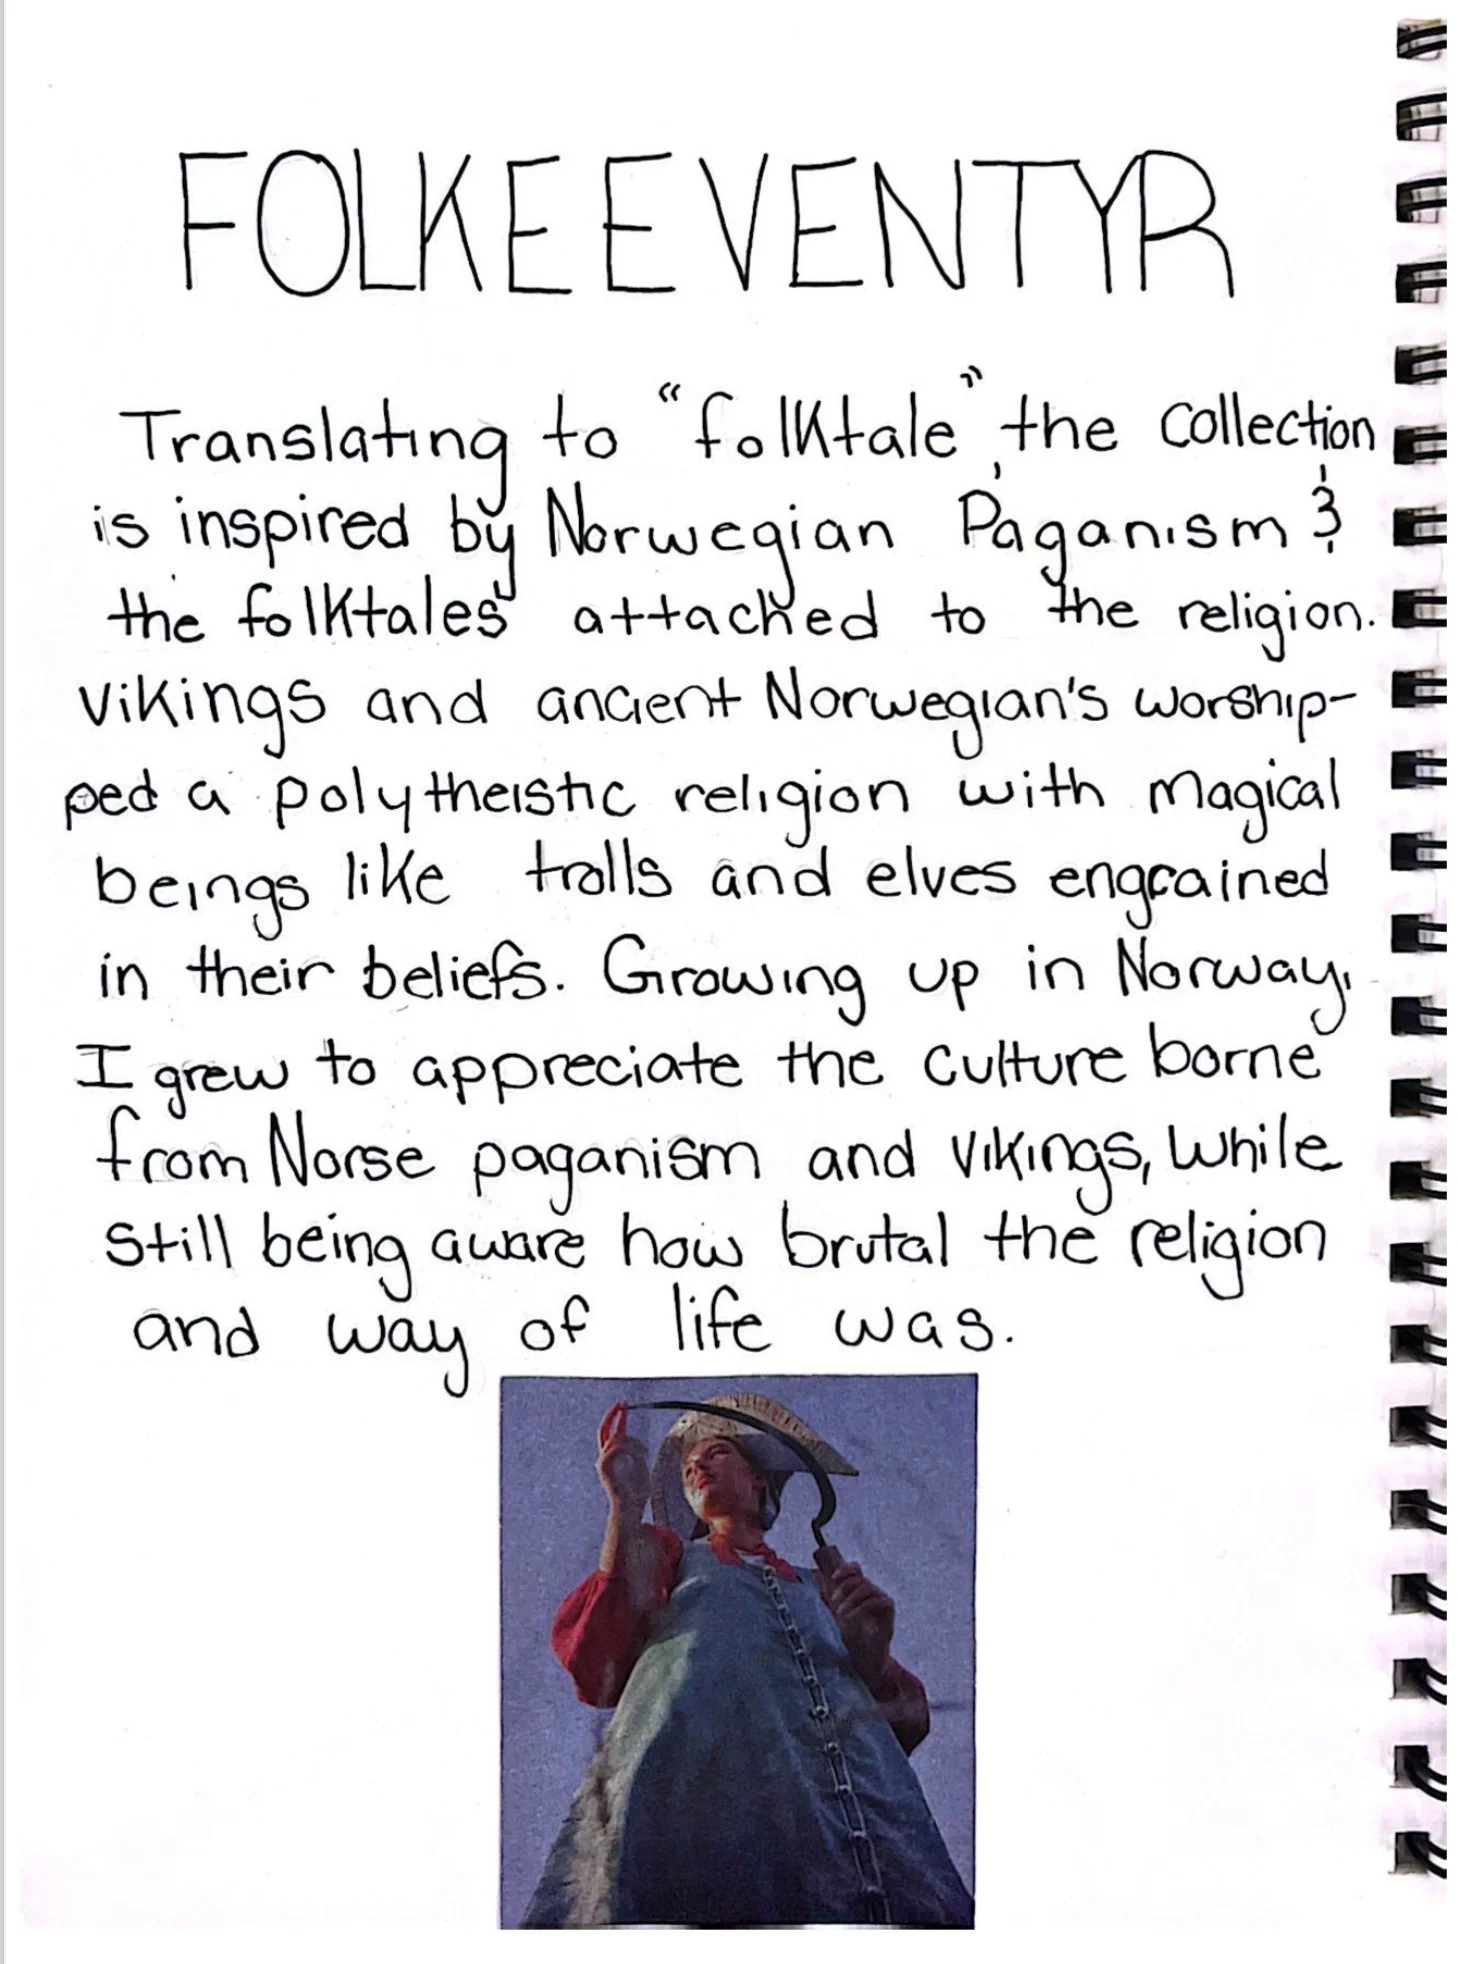 FOLKEEVENTYR
Translating to "folktale", the collection
is inspired by Norwegian Paganism &
the folktales attached to the religion.
Vikings and ancient Norwegian's worship-
ped a polytheistic religion with magical
beings like trolls and elves engrained
in their beliefs. Growing up in Norway,
I grew to appreciate the culture borne
from Norse paganism and vikings, while
still being aware how brutal the religion
and way of life was.